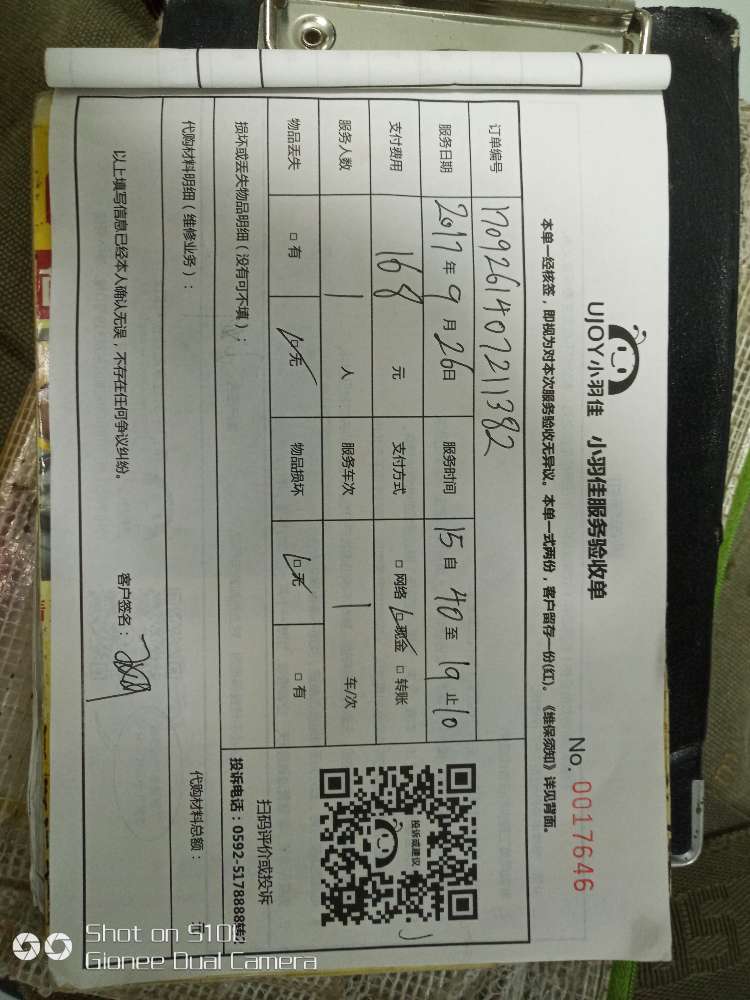 UJOY小羽佳 小羽佳服务验收单
No. 0017646
本单一经核签，即视为对本次服务验收无异议。本单一式两份，客户留存一份(红)。《维保须知》详见背面。
订单编号 1709261407211382
服务日期 2017年9月26日 服务时间 15自40至19止10
支付费用 168元 支付方式 □网络 □现金 □转账
服务人数 1人 服务车次 1车/次
物品丢失 □有 □无 物品损坏 □无 □有
损坏或丢失物品明细（没有可不填）：
投诉或建议
扫码评价或投诉
投诉电话：0592-5178888转
代购材料明细（维修业务）：
代购材料总额： 元
以上填写信息已经本人确认无误，不存在任何争议纠纷。
客户签名：
Shot on S10
Gionee Dual Camera